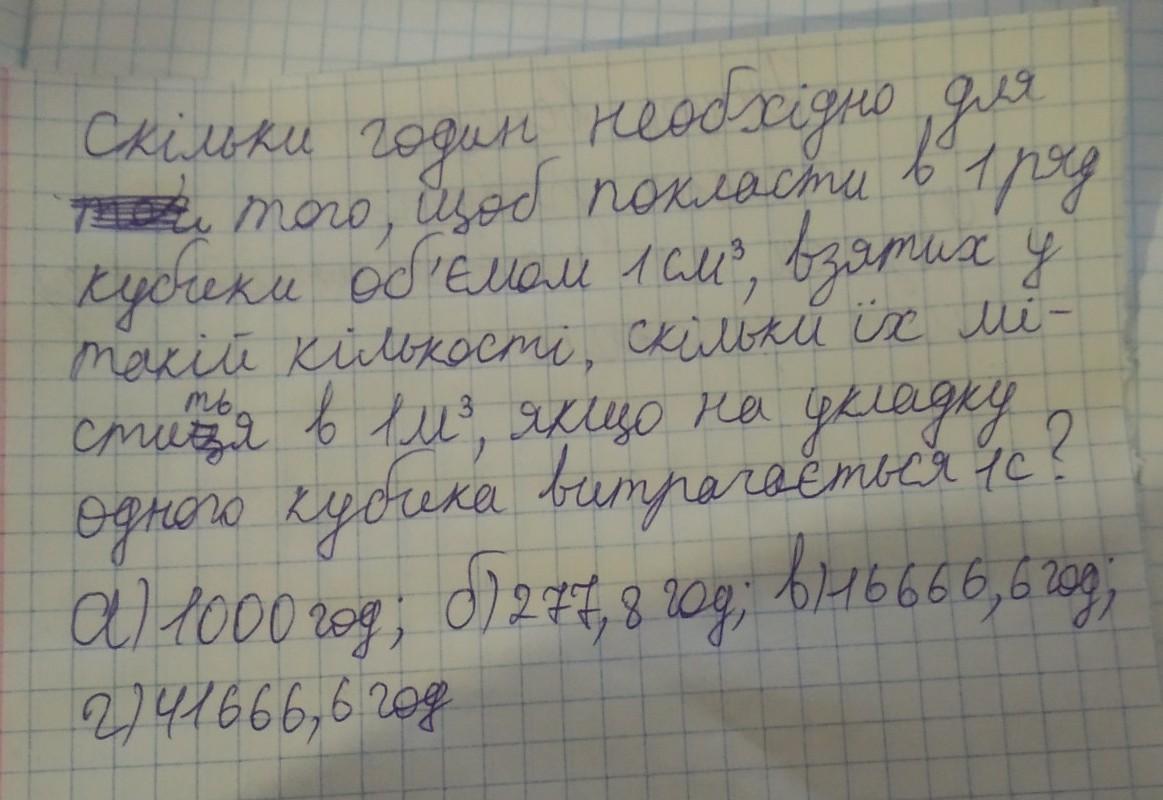 Скільки годин необхідно для
того, щоб покласти в 1 ряд
кубики об'ємом 1 см³, взятих у
такій кількості, скільки їх мі-
ститься в 1м³, якщо на укладку
одного кубика витрачається 1с?
а) 1000 год; б) 277,8 год; в) 16666,6 год;
г) 41666,6 год